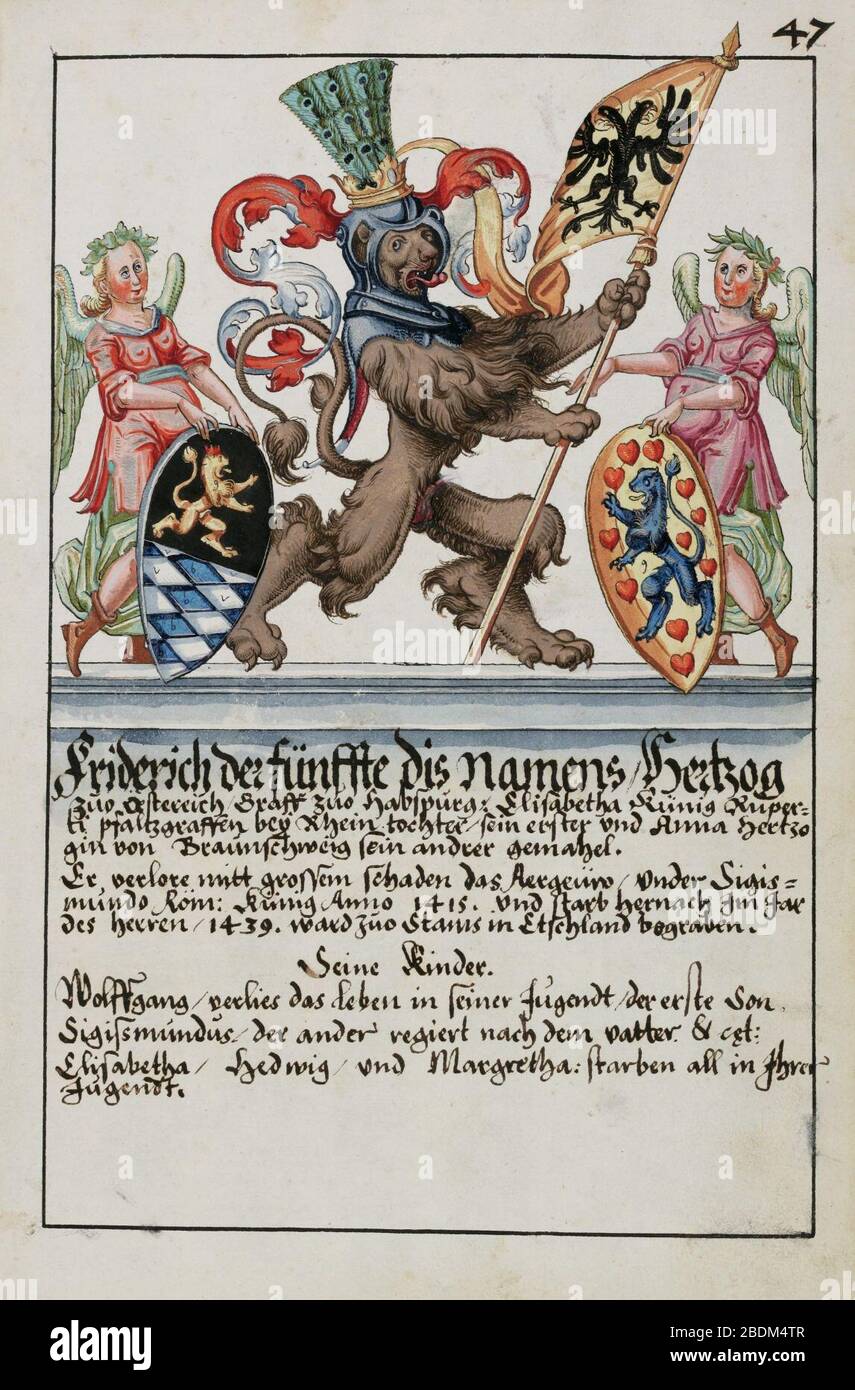 47
Friderich der fünffte dis Namens / Hertzog
zuo Östereich / Graff zuo Habspurg: Elisabetha Künig Ruper-
ti pfaltzgraffen bey Rhein tochter / sein erster und Anna Hertzo
gin von Braunschweig sein andrer gemahel.
Er verlore mitt grossem schaden das Aergeüw / under Sigis=
mundo Röm: Künig Anno 1415. und starb hernach Im Jar
des herren / 1439. ward zuo Stams in Etschland begraben.
Seine Kinder.
Wolffgang / verlies das leben in seiner Jugendt / der erste Son.
Sigissmundus / der ander regiert nach dem vatter. & cęt:
Elisabetha / Hedwig / und Margretha: starben all in Ihrer
Jugendt.
alamy
Image ID: 2BDM4TR
www.alamy.com